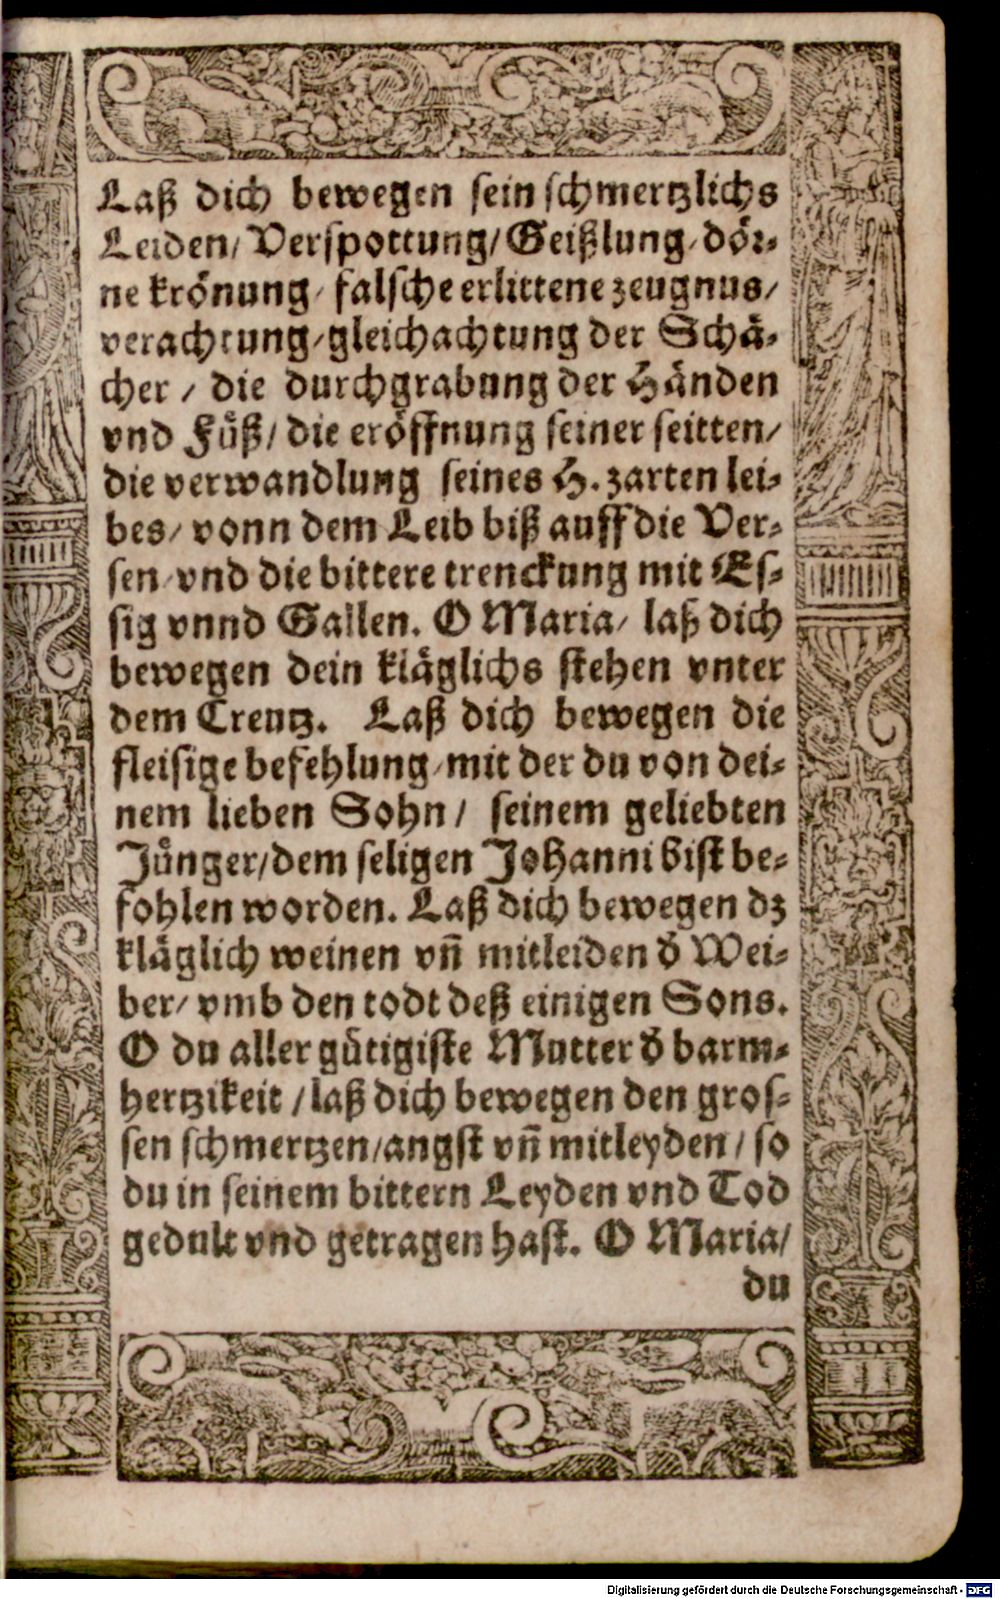 Laß dich bewegen sein schmertzlichs
Leiden/ Verspottung/ Geißlung/ dör-
ne krönung/ falsche erlittene zeugnus/
verachtung/ gleichachtung der Schä-
cher / die durchgrabung der Händen
vnd Füß/ die eröffnung seiner seitten/
die verwandlung seines H. zarten lei-
bes/ vonn dem Leib biß auff die Ver-
sen/ vnd die bittere trenckung mit Es-
sig vnnd Gallen. O Maria/ laß dich
bewegen dein kläglichs stehen vnter
dem Creutz. Laß dich bewegen die
fleisige befehlung/ mit der du von dei-
nem lieben Sohn / seinem geliebten
Jünger/ dem seligen Johanni bist be-
fohlen worden. Laß dich bewegen dz
kläglich weinen vn̄ mitleiden d̕ Wei-
ber/ vmb den todt deß einigen Sons.
O du aller gütigiste Mutter d̕ barm-
hertzikeit / laß dich bewegen den gros-
sen schmertzen/ angst vn̄ mitleyden / so
du in seinem bittern Leyden vnd Tod
gedult vnd getragen hast. O Maria/
du
Digitalisierung gefördert durch die Deutsche Forschungsgemeinschaft - DFG